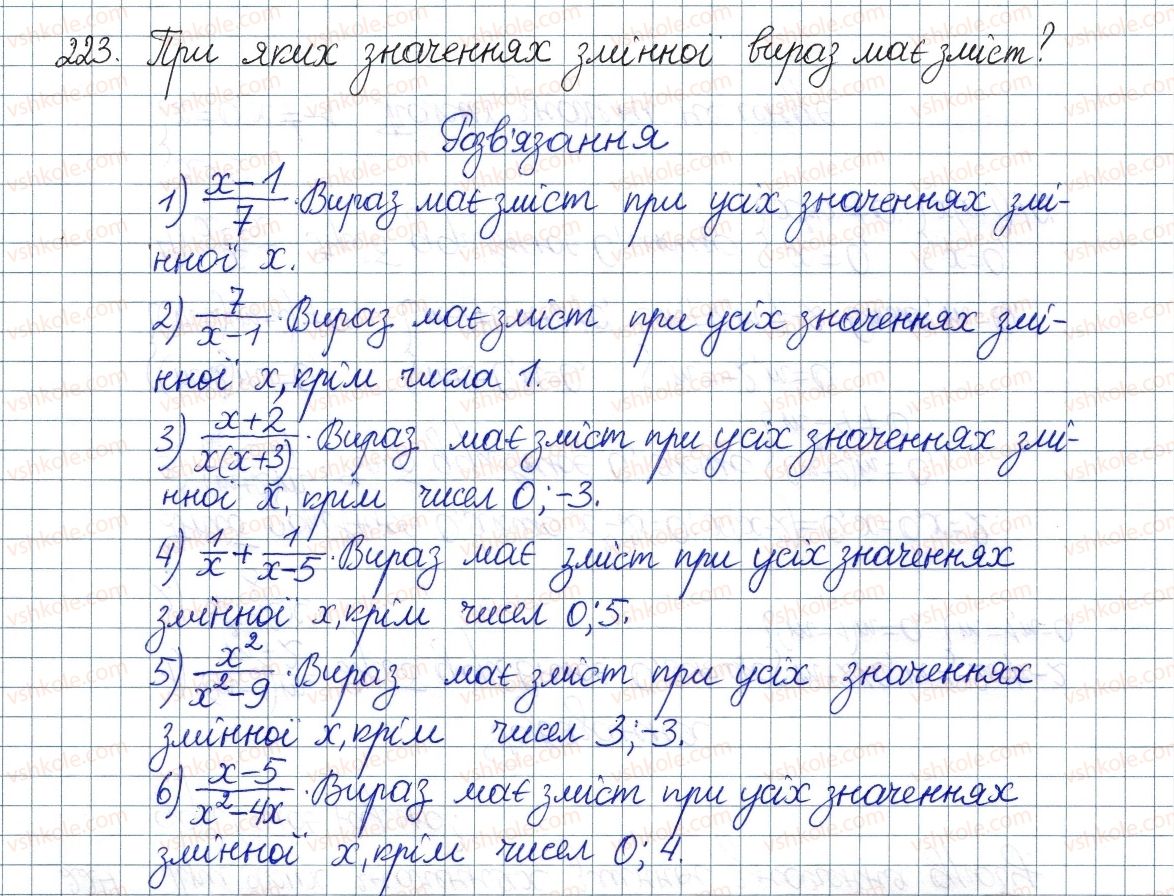 223. При яких значеннях змінної вираз має зміст?
Розв'язання
1) (x-1)/7. Вираз має зміст при усіх значеннях змі-
нної x.
2) 7/(x-1). Вираз має зміст при усіх значеннях змі-
нної x, крім числа 1.
3) (x+2)/(x(x+3)). Вираз має зміст при усіх значеннях змі-
нної x, крім чисел 0; -3.
4) 1/x + 1/(x-5). Вираз має зміст при усіх значеннях
змінної x, крім чисел 0; 5.
5) x²/(x²-9). Вираз має зміст при усіх значеннях
змінної x, крім чисел 3; -3.
6) (x-5)/(x²-4x). Вираз має зміст при усіх значеннях
змінної x, крім чисел 0; 4.
vshkole.com